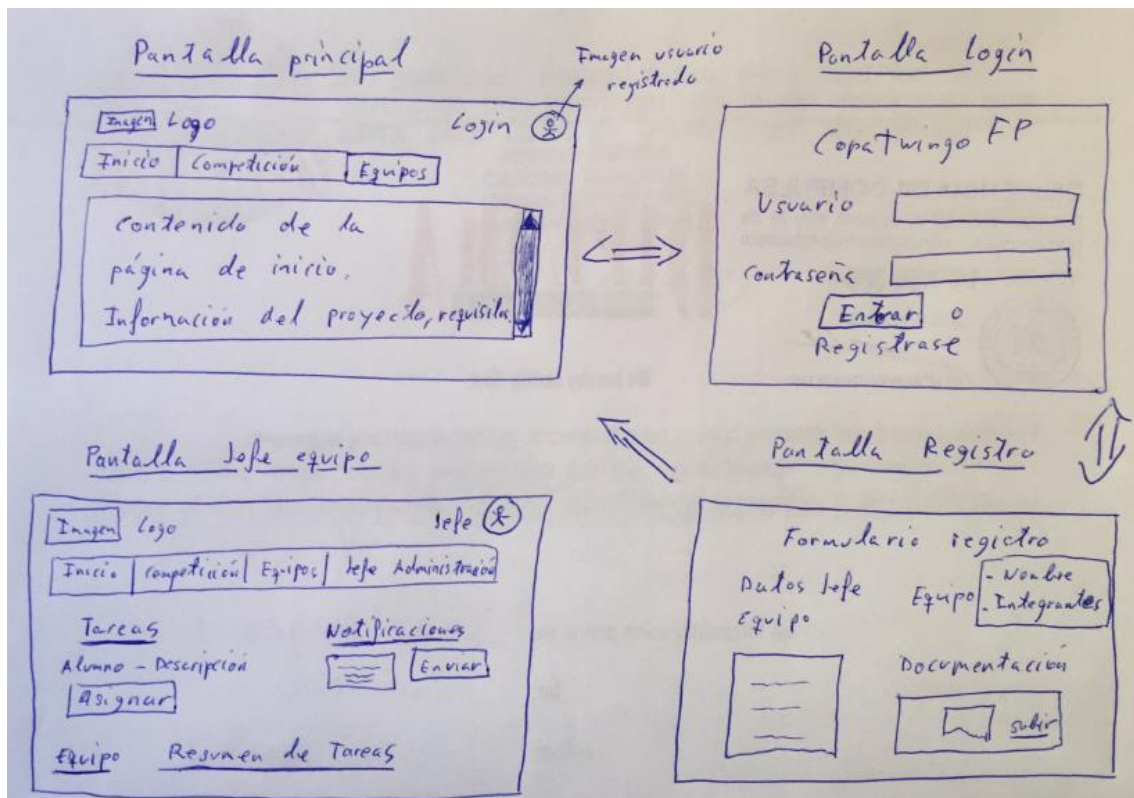 Pantalla principal
Imagen usuario
registrado
Imagen Logo
Login
Inicio Competición Equipos
Contenido de la
página de inicio.
Información del proyecto, requisitos
Pantalla login
CopaTwingo FP
Usuario
Contraseña
Entrar o
Registrase
Pantalla Jefe equipo
Imagen Logo
Jefe
Inicio Competición Equipos Jefe Administración
Tareas
Notificaciones
Alumno - Descripción
Enviar
Asignar
Equipo
Resumen de Tareas
Pantalla Registro
Formulario registro
Datos Jefe
Equipo
Equipo
- Nombre
- Integrantes
Documentación
subir